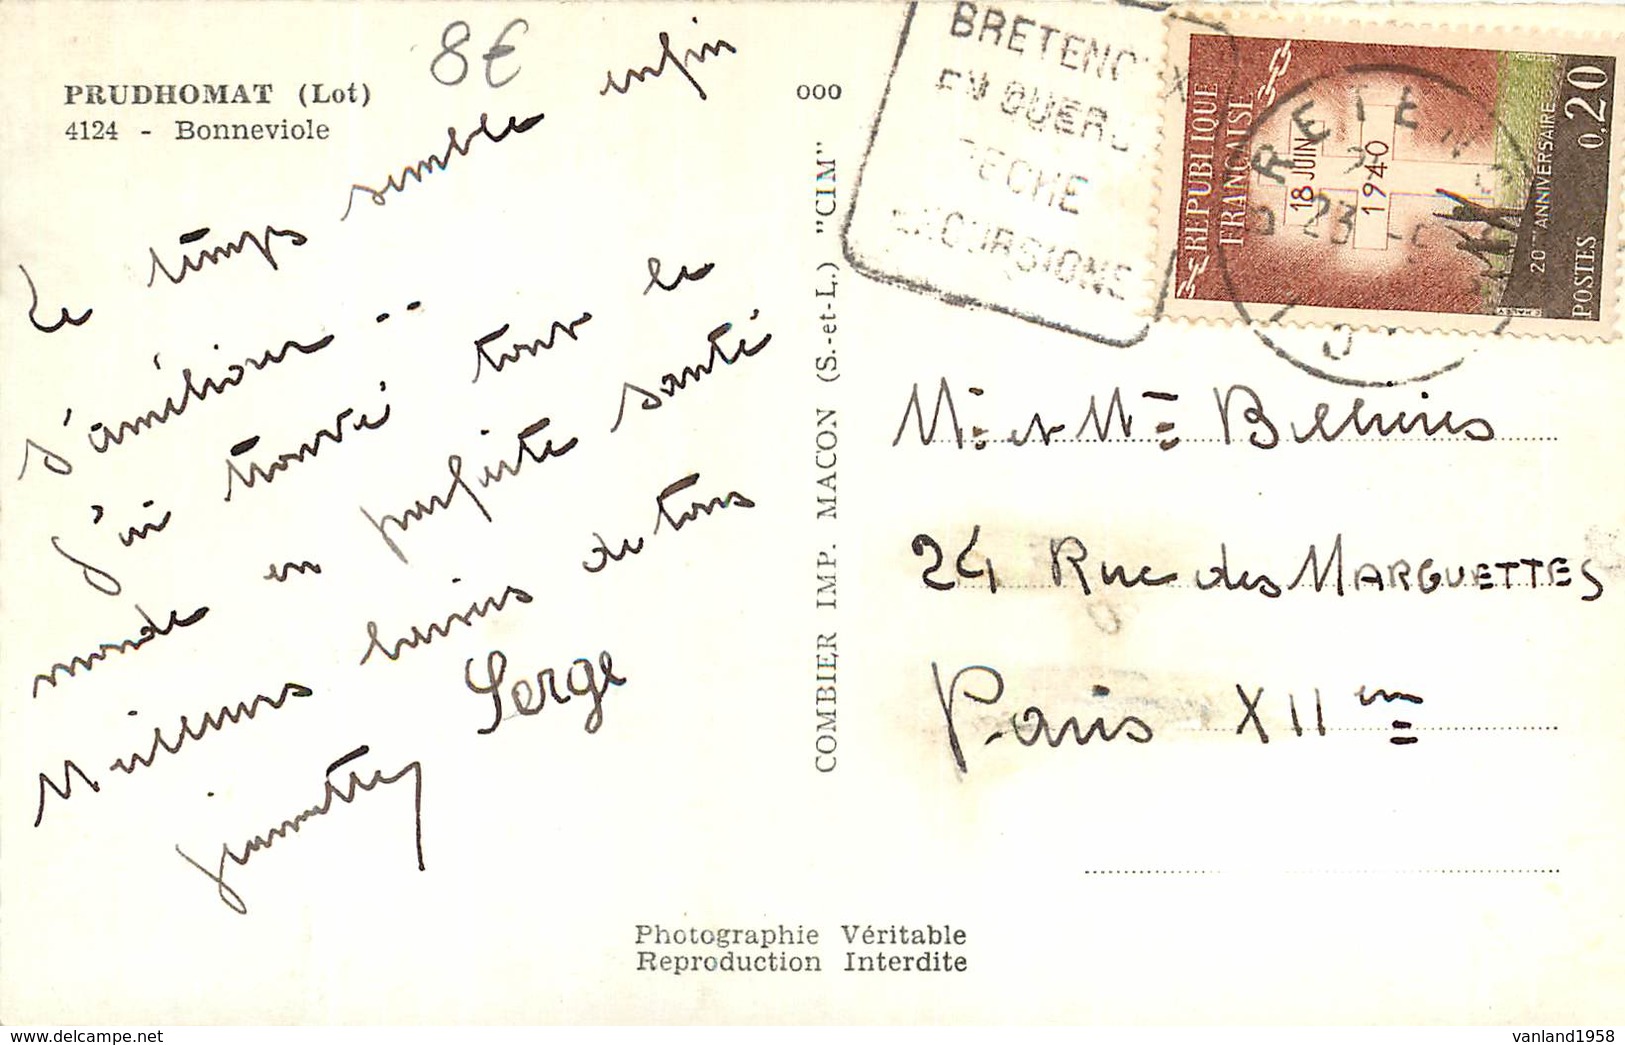 8€
PRUDHOMAT (Lot)
4124 - Bonneviole
ooo
Le temps semble enfin
s'améliorer ..
J'ai trouvé tour le
monde en parfaite santé
Meilleurs baisers de tous
Serge
Jeannette
COMBIER IMP. MACON (S.-et-L.) "CIM"
Photographie Véritable
Reproduction Interdite
BRETENOUX
EN QUERCY
PECHE
EXCURSIONS
REPUBLIQUE
FRANÇAISE
18 JUIN
1940
20ME ANNIVERSAIRE
POSTES 0,20
BRETENOUX
23
Mr et Mme
24 Rue des MARGUETTES
Paris XII em
vanland1958